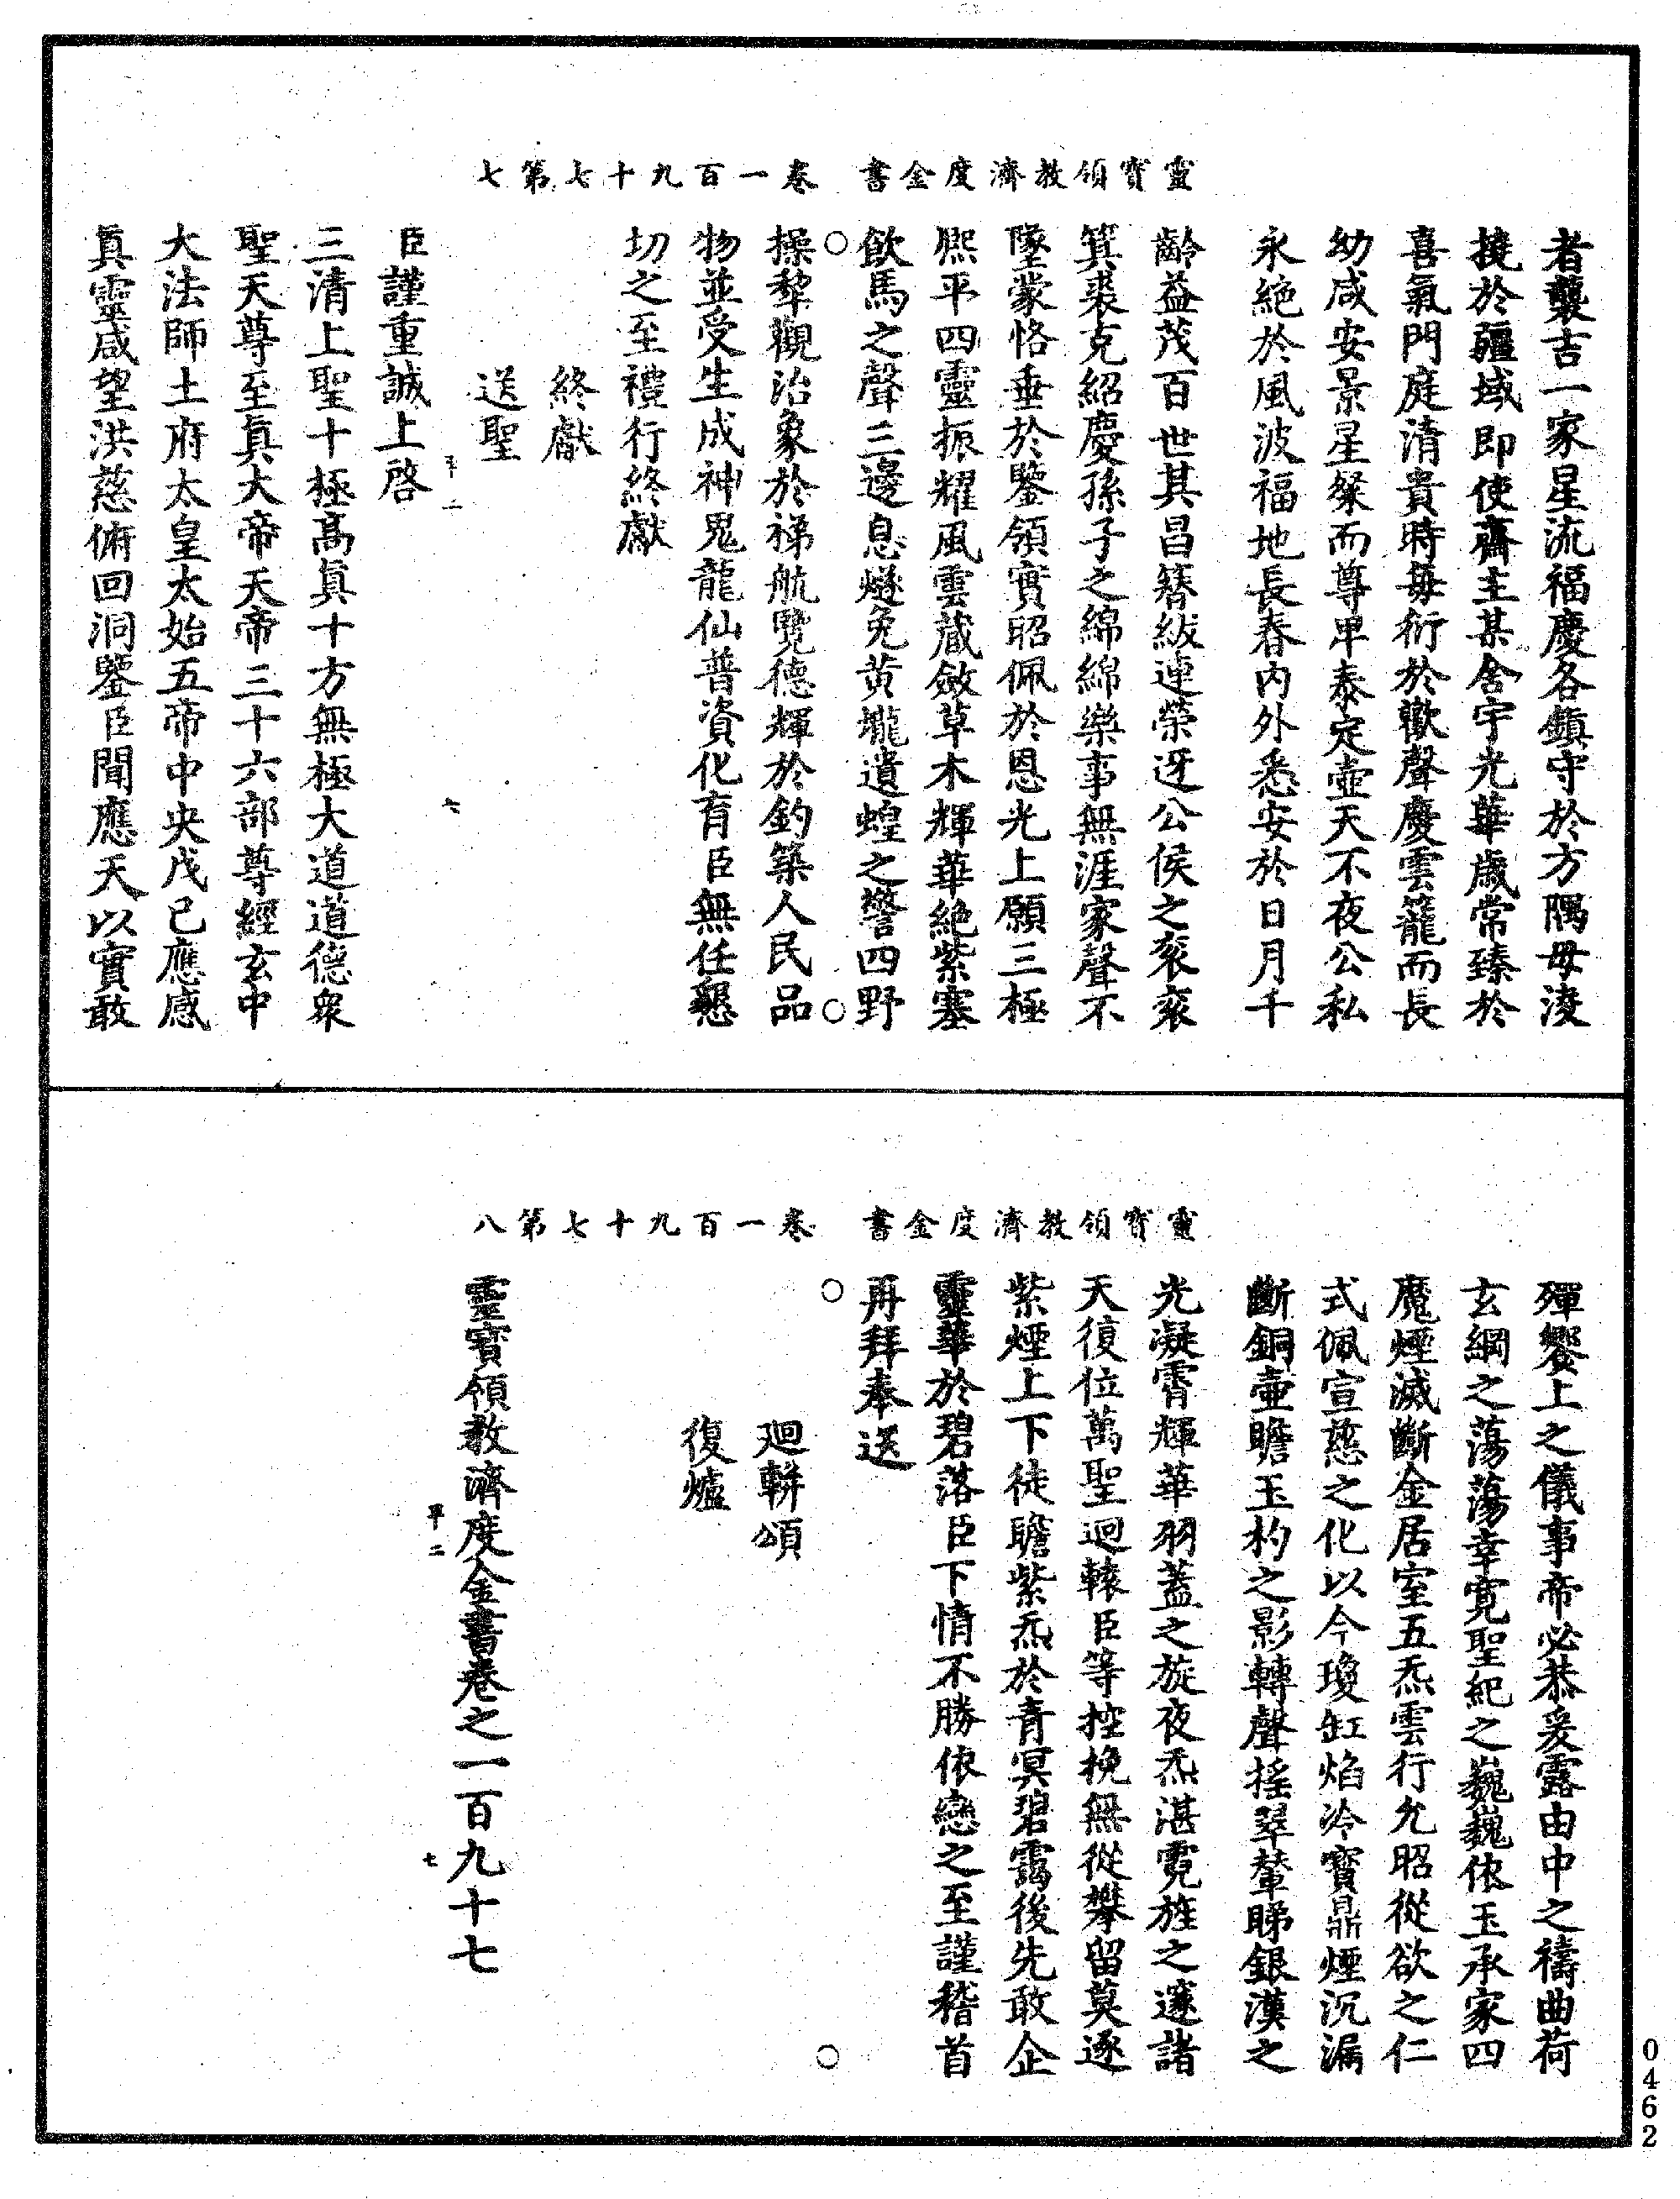 靈寶領教濟度金書　卷一百九十七第七
者襲吉一家星流福慶各鎮守於方隅毋淩
撓於疆域即使齋主某舍宇光華歲常臻於
喜氣門庭清貴時每衍於歡聲慶雲籠而長
幼咸安景星粲而尊卑泰定壺天不夜公私
永絕於風波福地長春內外悉安於日月千
齡益茂百世其昌簪紱連榮迓公侯之袞袞
箕裘克紹慶孫子之綿綿樂事無涯家聲不
墜蒙恪垂於鑒領實昭佩於恩光上願三極
熙平四靈振耀風雲藏斂草木輝華絕紫塞
飲馬之聲三邊息燧免黃壠遺蝗之警四野
操犂觀治象於梯航覽德輝於釣築人民品
物並受生成神鬼龍仙普資化育臣無任懇
切之至禮行終獻
終獻
送聖
臣謹重誠上啓
平一
六
三清上聖十極高眞十方無極大道道德衆
聖天尊至眞大帝天帝三十六部尊經玄中
大法師土府太皇太始五帝中央戊己應感
眞靈咸望洪慈俯回洞鑒臣聞應天以實敢
靈寶領教濟度金書　卷一百九十七第八
殫饗上之儀事帝必恭爰露由中之禱曲荷
玄綱之蕩蕩幸寛聖紀之巍巍依玉承家四
魔煙滅斷金居室五炁雲行允昭從欲之仁
式佩宣慈之化以今瓊缸焰冷寶鼎煙沉漏
斷銅壺瞻玉杓之影轉聲搖翠輦睇銀漢之
光凝霄輝華羽蓋之旋夜炁湛霓旌之邃諸
天復位萬聖迴轅臣等控挽無從攀留莫逐
紫煙上下徒瞻紫炁於青冥碧靄後先敢企
靈華於碧落臣下情不勝依戀之至謹稽首
再拜奉送
廻軿頌
復爐
靈寶領教濟度金書卷之一百九十七
平二
七
0462